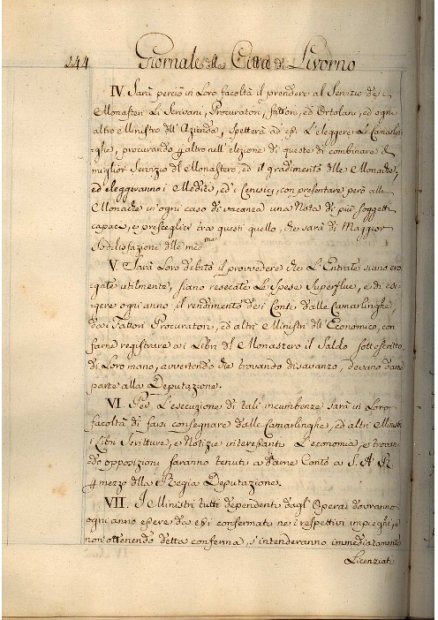 244 Giornale della Città di Livorno
IV Sarà perciò in Loro facoltà il prendere al Servizio de i
Monasteri Li Scrivani, Procuratori, Fattori, ed Ortolani, ed ogni
altro Ministro dell'Azienda, Spetterà ad essi L'eleggere Le Camarlin-
ghe, procurando per altro nell'elezione di queste di combinare il
miglior Servizio del Monastero, ed il gradimento delle Monache,
ed eleggeranno i Medici, ed i Cerusici, con presentare però alle
Monache in ogni caso di vacanza una Nota di più soggetti
capaci, e prescegliere tra questi quello, che sarà di Maggior
Sodisfazione delle med.me
V. Sarà Loro debito il provvedere che L'Entrate siano ero-
gate utilmente, siano resecate Le Spese Superflue, e di esi-
gere ogni anno il rendimento dei Conti dalle Camarlinghe,
da i Fattori Procuratori, ed altri Ministri dell'Economico, con
farne registrare ai Libri del Monastero il Saldo sottoscritto
di Loro mano, avvertendo che trovando disavanzo, devano darne
parte alla Deputazione.
VI. Per L'esecuzione di tali incumbenze sarà in Loro
facoltà di farsi consegnare dalle Camarlinghe, ed altri Ministri
i Libri Scritture, e Notizie interessanti L'economia, e trovan-
do opposizioni saranno tenuti a darne Conto a S. A. R.
per mezzo della Regia Deputazione.
VII. I Ministri tutti dipendenti dagl'Operai dovranno
ogni anno essere da essi confermati nei respettivi impieghi, e
non ottenendo detta conferma, s'intenderanno immediatamente
Licenziati